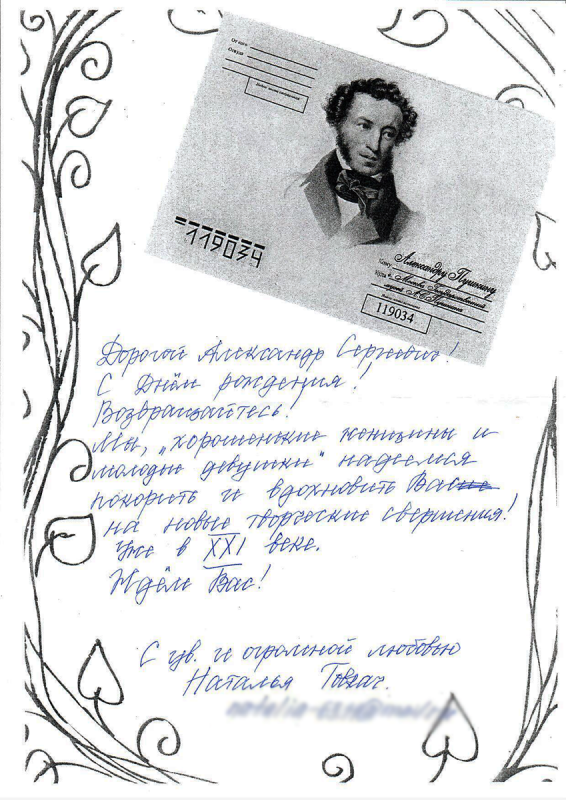 От кого
Откуда
119034
Кому Александру Пушкину
Куда г. Москва Государственный
музей А.С. Пушкина
119034
Дорогой Александр Сергеевич!
С Днём рождения!
Возвращайтесь!
Мы, „хорошенькие женщины и
молодые девушки“ надеемся
покорить и вдохновить Вас
на новые творческие свершения!
Уже в XXI веке.
Ждём Вас!
С ув. и огромной любовью
Наталья